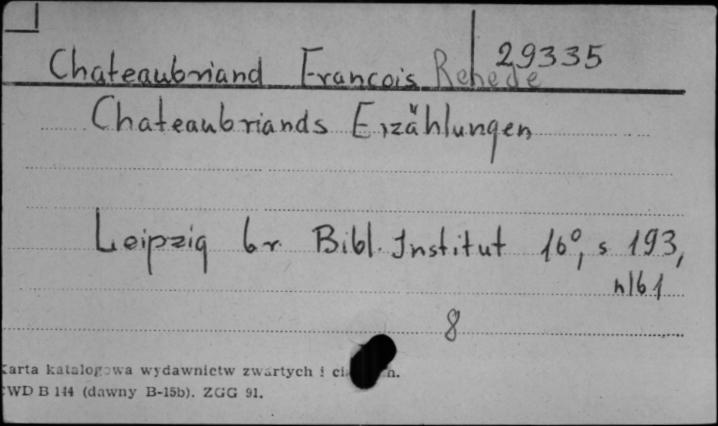 29335
Chateaubriand Francois Renede
Chateaubriands Erzählungen
Leipzig br. Bibl. Institut 16°, s 193,
nlb 1
8
Karta katalogowa wydawnictw zwartych i
CWD B 144 (dawny B-15b). ZGG 91.